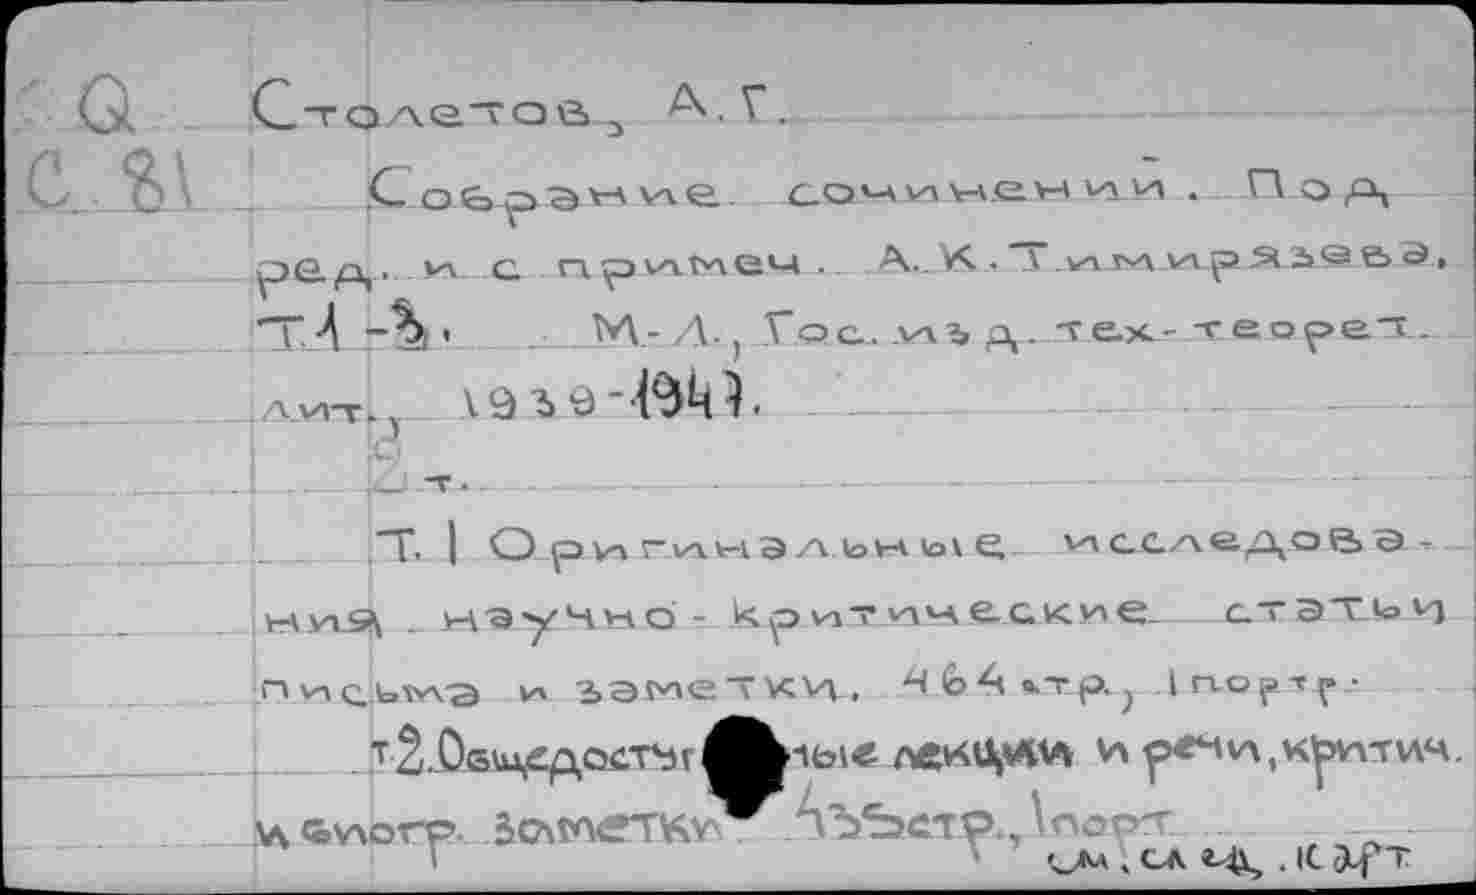 Q Столетов, А.Г.
С 81 Собрание сочинений. Под
ред. и с примеч. А.К.Тимирязева.
Т.1-3. М-Л., Гос. изд. тех-теорет.
лит., 1939-1947.
2 т.
Т. 1 Оригинальные исследова-
ния научно-критические статьи
письма и заметки. стр., 1 портр.
т.2. лекции и речи, критич.
и биогр. заметки стр., 1порт
см. след. карт